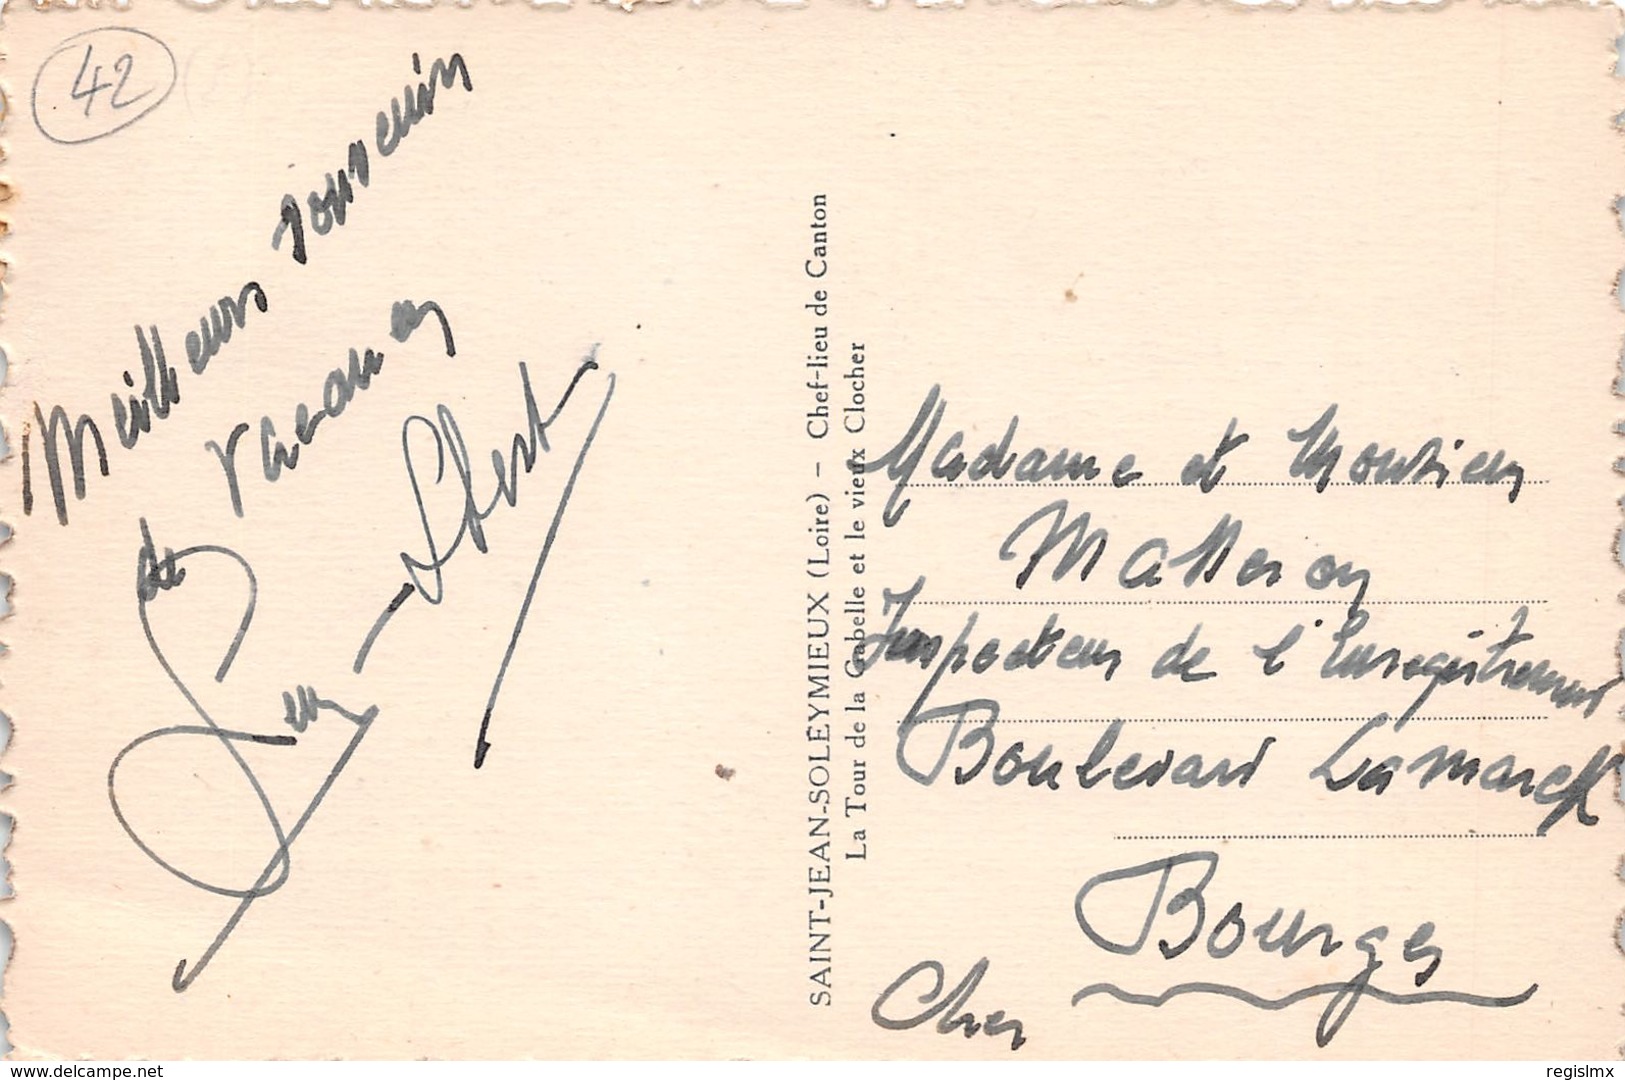 42
Meilleurs souvenirs
de vacances
SAINT-JEAN-SOLEYMIEUX (Loire) – Chef-lieu de Canton
La Tour de la Gabelle et le vieux Clocher
Madame et Monsieur
Inspecteur de l'Enregistrement
Boulevard Lamarck
Bourges
Cher
delcampe.net
regislmx